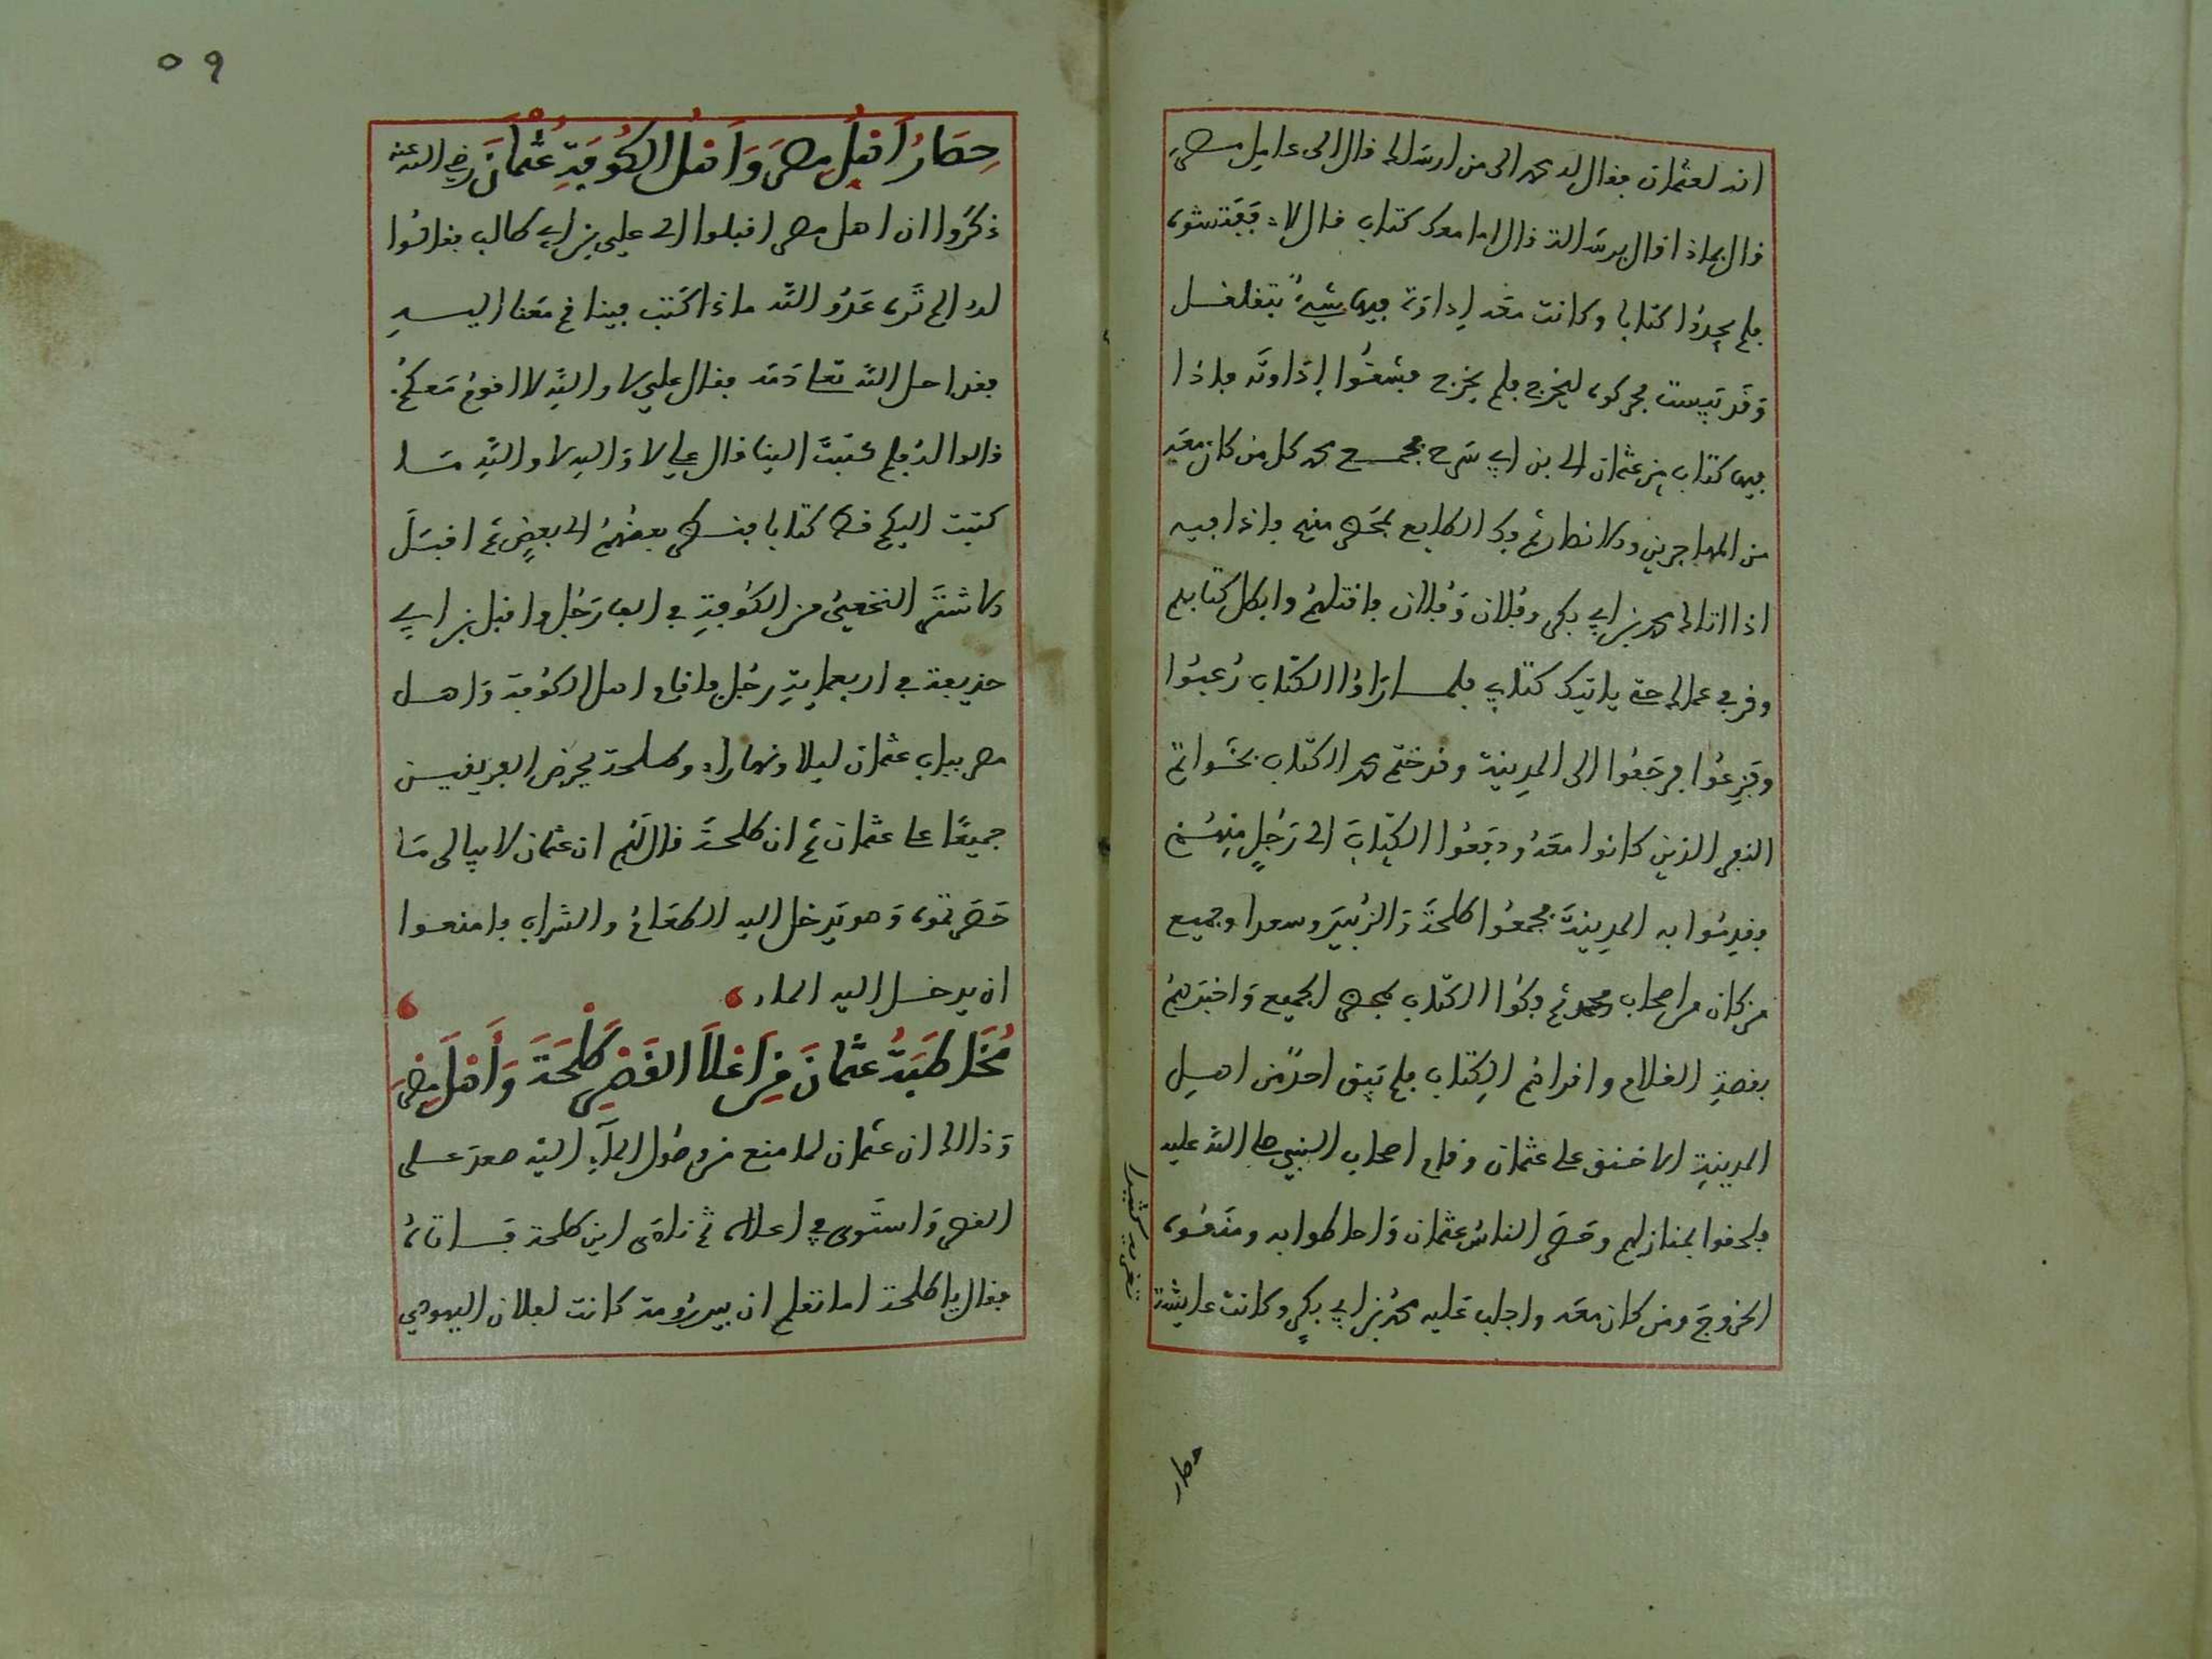 انه لعثمان فقال له محمد الى من ارسلك قال الى عامل مصر
قال بماذا قال برسالة قال اما معك كتاب قال لا ففتشوه
فلم يجدوا كتابا وكانت معه اداوة فيها شيء يتقلقل
وقد يبست فحركوه ليخرج فلم يخرج فشقوا اداوته فاذا
فيها كتاب من عثمان الى بن ابي سرح فجمع محمد كل من كان معه
من المهاجرين والانصار ثم فك الطابع بمحضر منهم فاذا فيه
اذا اتاك محمد بن ابي بكر وفلان وفلان فاقتلهم وابطل كتابهم
وقر في عملك حتى ياتيك كتابي فلما راوا الكتاب رعبوا
وفزعوا فرجعوا الى المدينة وقد ختم محمد الكتاب بخواتم
النفر الذين كانوا معه ودفعوا الكتاب الى رجل منهم
فقدموا به المدينة فجمعوا طلحة والزبير وسعدا وجميع
من كان من اصحاب محمد ثم فكوا الكتاب بمحضر الجميع واخبرهم
بقصة الغلام واقراهم الكتاب فلم يبق احد من اهل
المدينة الا حنق على عثمان وقام اصحاب النبي صلى الله عليه
فلحقوا بمنازلهم وحصر الناس عثمان واحاطوا به ومنعوه
الخروج ومن كان معه واجلب عليه محمد بن ابي بكر وكانت عايشة
تغريه كثيرا
حصار
٥٩
حِصَارُ أَهْلِ مِصْرَ وَأَهْلِ الكُوفَةِ عُثْمَانَ رضي الله عنه
ذكروا ان اهل مصر اقبلوا الى علي بن ابي طالب فقالوا
له الم تر عدو الله ماذا كتب فينا قم معنا اليه
فقد احل الله تعلى دمه فقال علي لا والله لا اقوم معكم
قالوا له فلم كتبت الينا قال علي لا والله لا والله ما
كتبت اليكم قط كتابا فنظر بعضهم الى بعض ثم اقبل
الاشتر النخعي من الكوفة في الف رجل واقبل بن ابي
حذيفة في اربعماية رجل فاقام اهل الكوفة واهل
مصر بباب عثمان ليلا ونهارا وطلحة يحرض الفريقين
جميعا على عثمان ثم ان طلحة قال لهم ان عثمان لا يبالى ما
حصرتموه وهو يدخل اليه الطعام والشراب فامنعوا
ان يدخل اليه الماء
مُخَاطَبَةُ عُثْمَانَ مِنْ أَعْلَا القَصْرِ طَلْحَةَ وَأَهْلَ مِصْرَ
وذالك ان عثمان لما منع من وصول الماء اليه صعد على
القصر واستوى في اعلاه ثم نادى اين طلحة فاتاه
فقال يا طلحة اما تعلم ان بير رومة كانت لفلان اليهودي